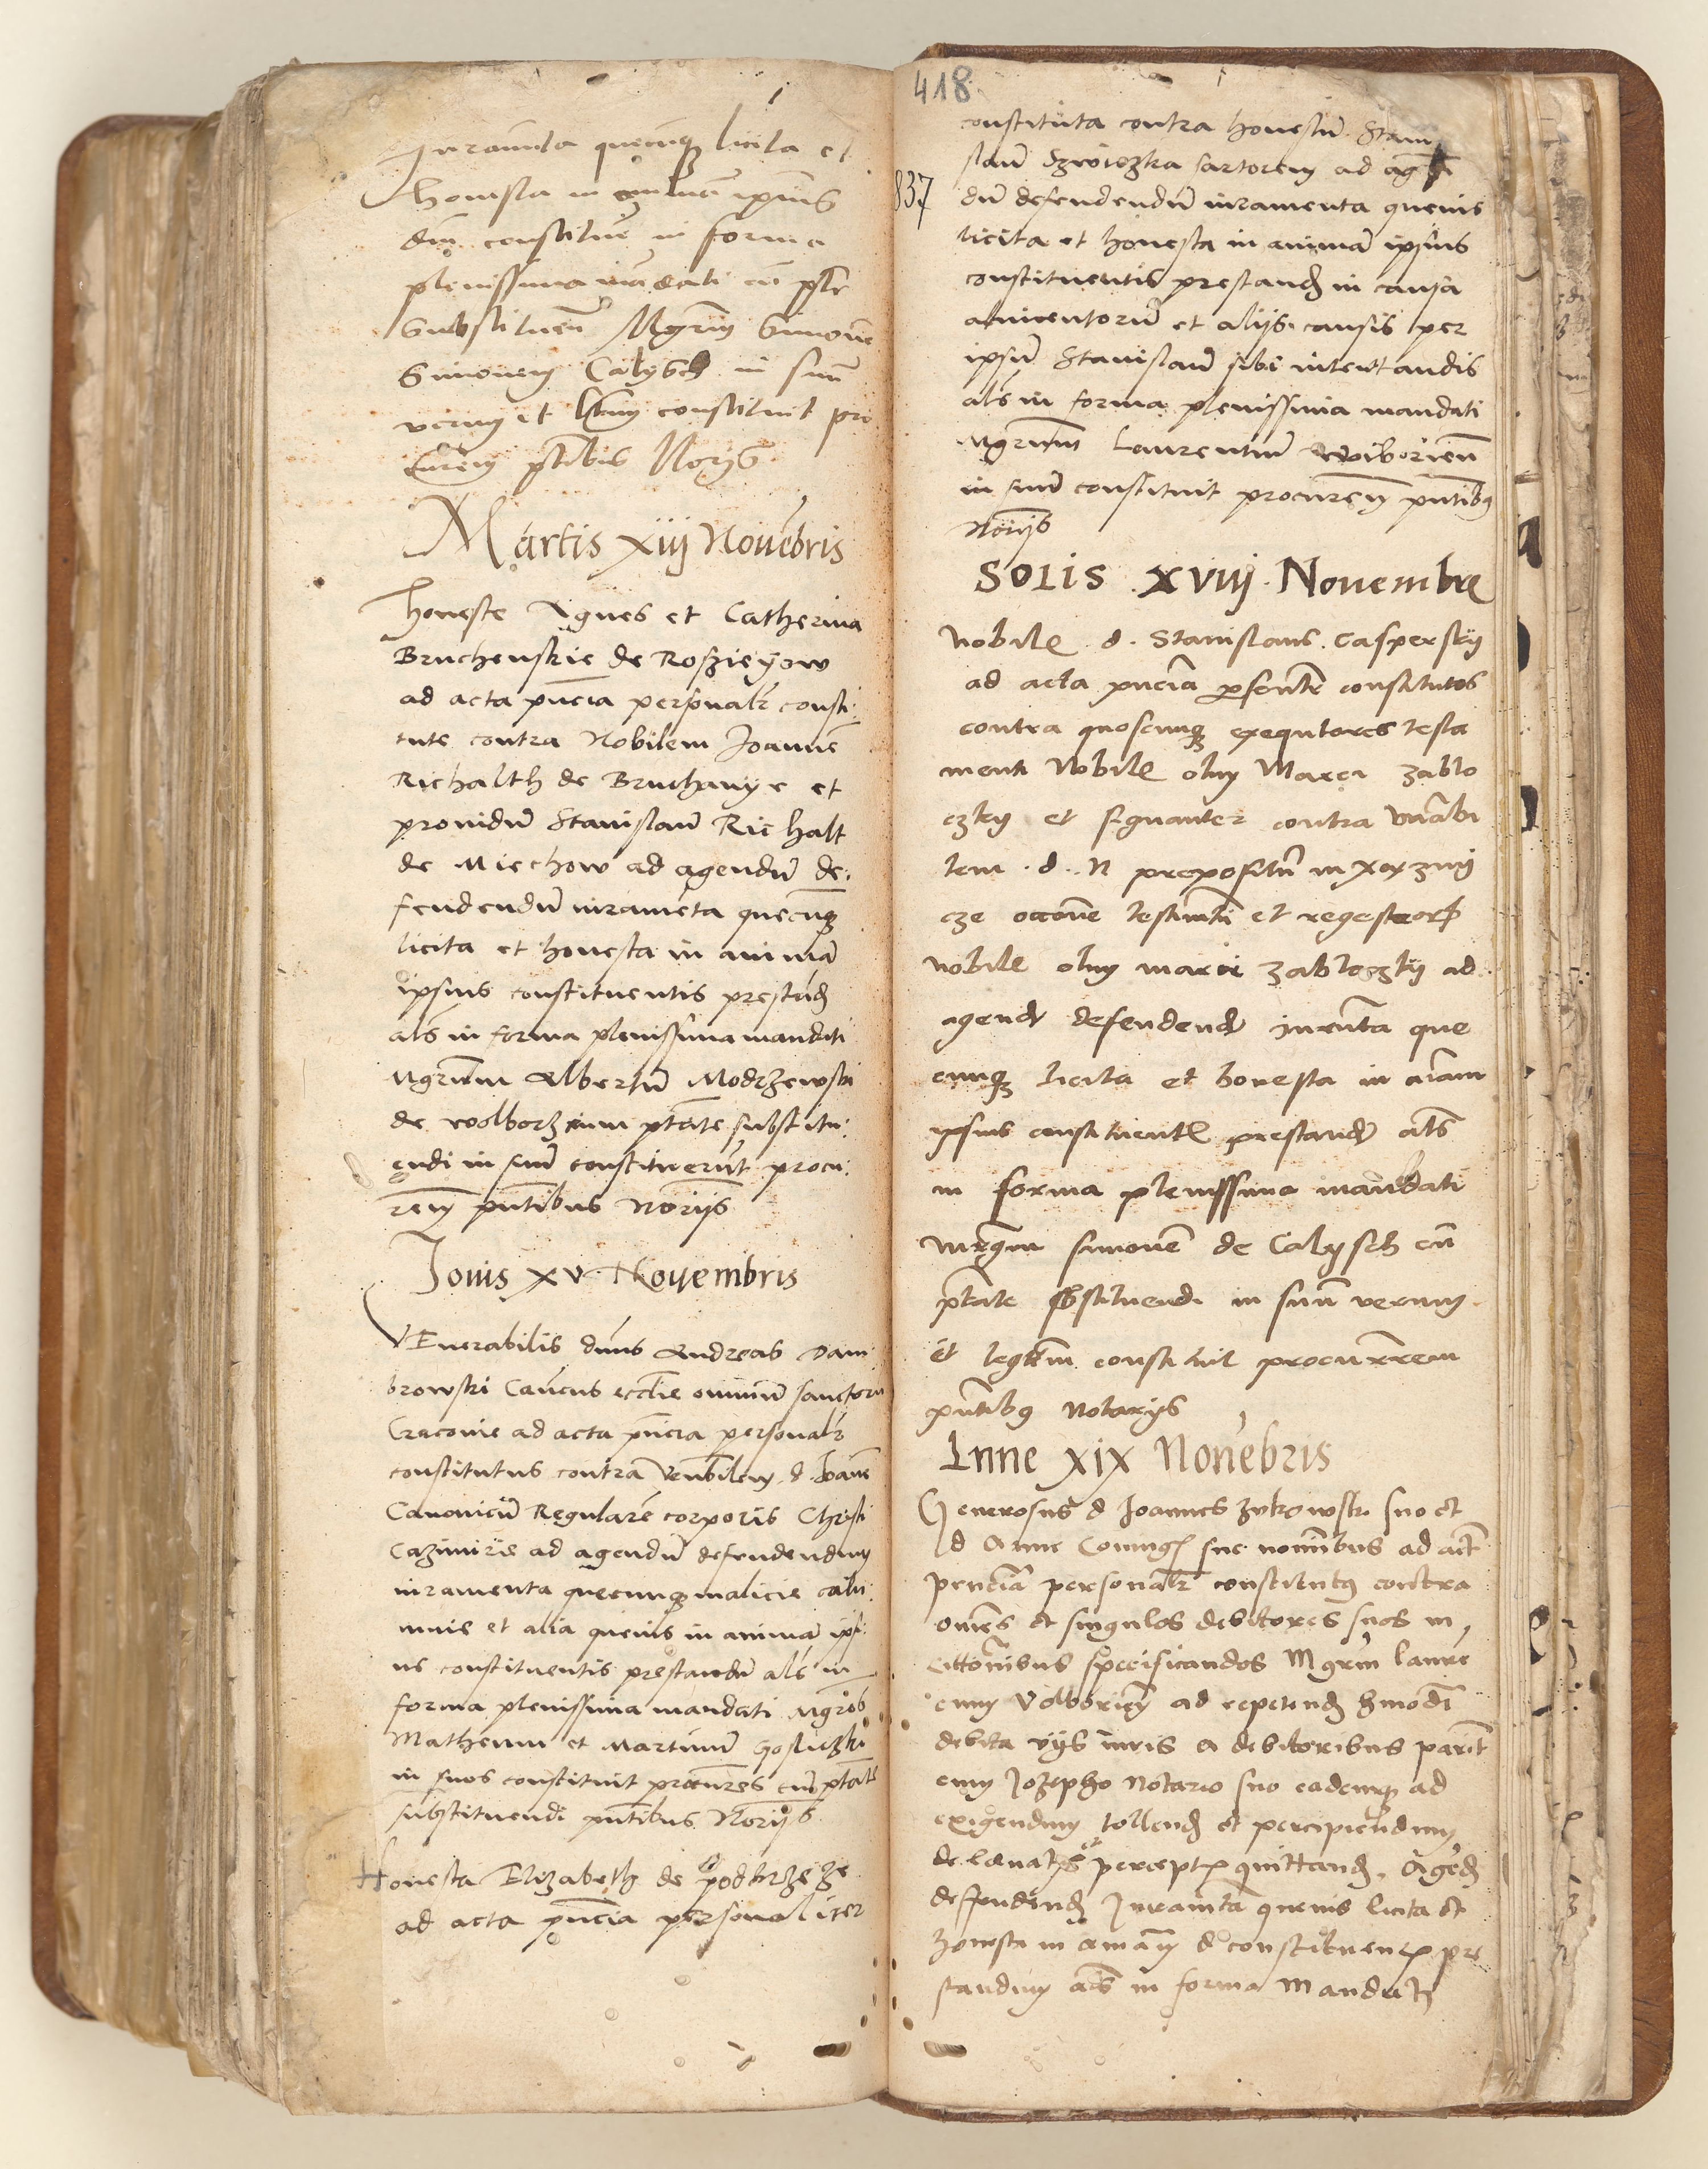 Juramenta quecunq licita et
honesta in animā ipsius
dni constituen in forma
plenissima mādati cū ptte
substituen Mgrum Simonē
Simonem Calysch in suū
verum et constituit pro
curem pntibus Norijs
Martis xiij Nouēbris
Honeste Agnes et Catherina
Bruchenskie de Koszieyow
ad acta pncia personalr consti
tute contra Nobilem Joannē
Richalth de Bruchanye et
prouidū Stanislaū Richalt
de Miechow ad agendū de
fendendū iuramēta quecuq
licita et honesta in animā
ipsius constituentis prestād
als in forma plenissima mandati
Mgrum Albertū Modrzewski
de wolborz cum ptate substitu
endi in suū constituerūt procu
rem pntibus Norijs
Jouis xv Nouembris
VEnerabilis dnus Andreas Dam
browski Caucus ecclie omniū sanctorū
Cracouie ad acta pncia personalr
constitutus contra Venbilem d. Joanē
Canonicū Regularē corporis Christi
Cazimirie ad agendū defendendum
iuramenta quecunq malicie calu
mnie et alia queuis in animā ipsi
us constituentis prestandū als in
forma plenissima mandati Mgros
Matheum et Martinum Goslyczki
in suos constituit procures cum ptate
substituendi pntibus Norijs
Honesta Elizabeth de podbrzeze
ad acta pncia personaliter
418
constituta contra honestū Stani
slaū Szwiczka sartorem ad agen
837
dū defendendū iuramenta queuis
licita et honesta in animā ipsius
constituentis prestand in causa
et alijs causis per
ipsū Stanislaū sibi intentandis
als in forma plenissima mandati
Mgrum Laurentiū woiborien
in suū constituit procurem pntibq
Norijs
SOLIS XVIIJ Novembr
Nobilis d. Stanislaus Casperskij
ad acta pncia psentr constitutos
contra quoscunq exequtores testa
menti Nobilis olim Marci zablo
czky et signanter contra Vnābi
lem d. N prepositū in
cze occone testmti et regestrorum
Nobilis olim marci zabloczkij ad
agend defendend iurmta que
cunq licita et honesta in aīam
ipsius constituentis prestand als
in forma plenissima mandati
mrgm simonē de Calysch cū
ptate sbstituendi in suū verum
et legttm constituit procurrem
pntibq Notarijs
Lune xix Nouēbris
Generosus d Joannes zukowski suo et
d Anne Coniugis sue nominibus ad act
pncia personalr constientq contra
omēs et singulos debitores suos in
cittonibus specificandos Mgrm laurē
cium Volborien ad repetend hmodi
debita vijs iuris a debitoribus parit
cum Jozepho Notario suo eademq ad
exigendum tollend et percipiendum
de leuatis et perceptis quittand Agēd
deffendend Juramta queuis licita et
honesta in animam d constituentis pre
standum als in forma Mandati